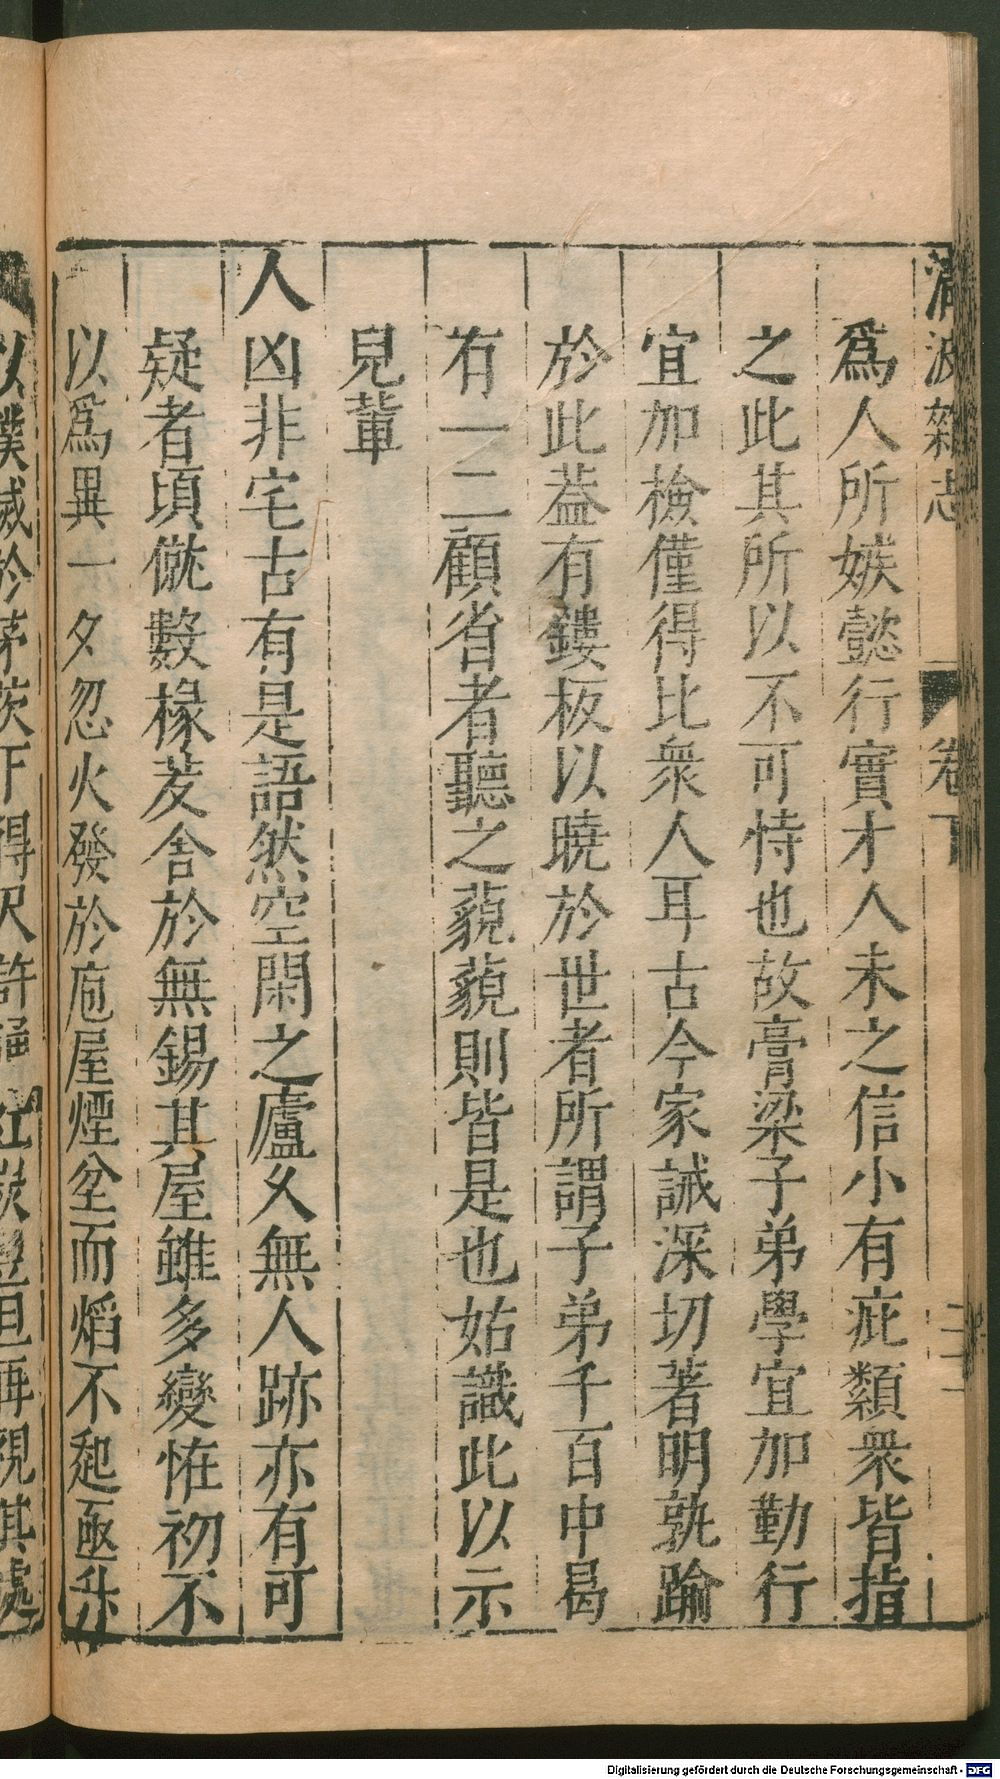 清波雜志 卷下
爲人所嫉懿行實才人未之信小有疵纇衆皆指
之此其所以不可恃也故膏梁子弟學宜加勤行
宜加檢僅得比衆人耳古今家誡深切著明孰踰
於此葢有鏤板以曉於世者所謂子弟千百中曷
有一二顧省者聽之藐藐則皆是也姑識此以示
兒軰
人凶非宅古有是語然空閑之廬久無人跡亦有可
疑者頃僦數椽茇舍於無錫其屋雖多變恠初不
以爲異一夕忽火發於庖屋煙坌而熖不起亟升
以撲滅於茅茨下得尺許 炭 且再視其處
Digitalisierung gefördert durch die Deutsche Forschungsgemeinschaft - DFG